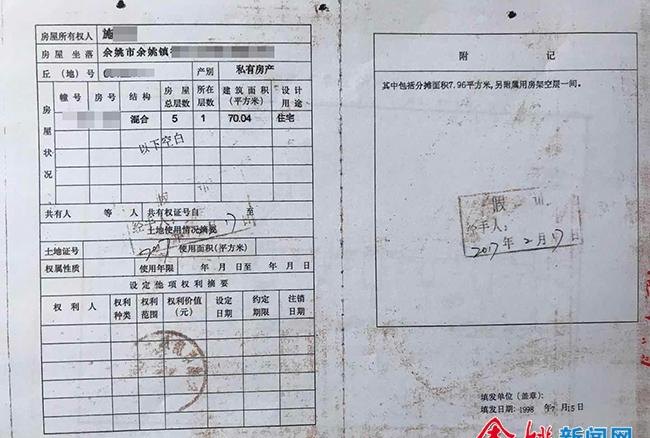 房屋所有权人 施
房屋坐落 余姚市余姚镇
丘(地)号 产别 私有房产
房屋状况
幢号 房号 结构 房屋总层数 所在层数 建筑面积(平方米) 设计用途
混合 5 1 70.04 住宅
以下空白
共有人 等 人 共有权证号自 至
土地使用情况摘要
土地证号 使用面积(平方米)
权属性质 使用年限 年 月 日至 年 月 日
设定他项权利摘要
权利人 权利种类 权利范围 权利价值(元) 设定日期 约定期限 注销日期
附记
其中包括分摊面积7.96平方米,另附属用房架空层一间。
假
经手人:
2017年2月17日
填发单位(盖章):
填发日期:1998 年7月15日
余姚新闻网